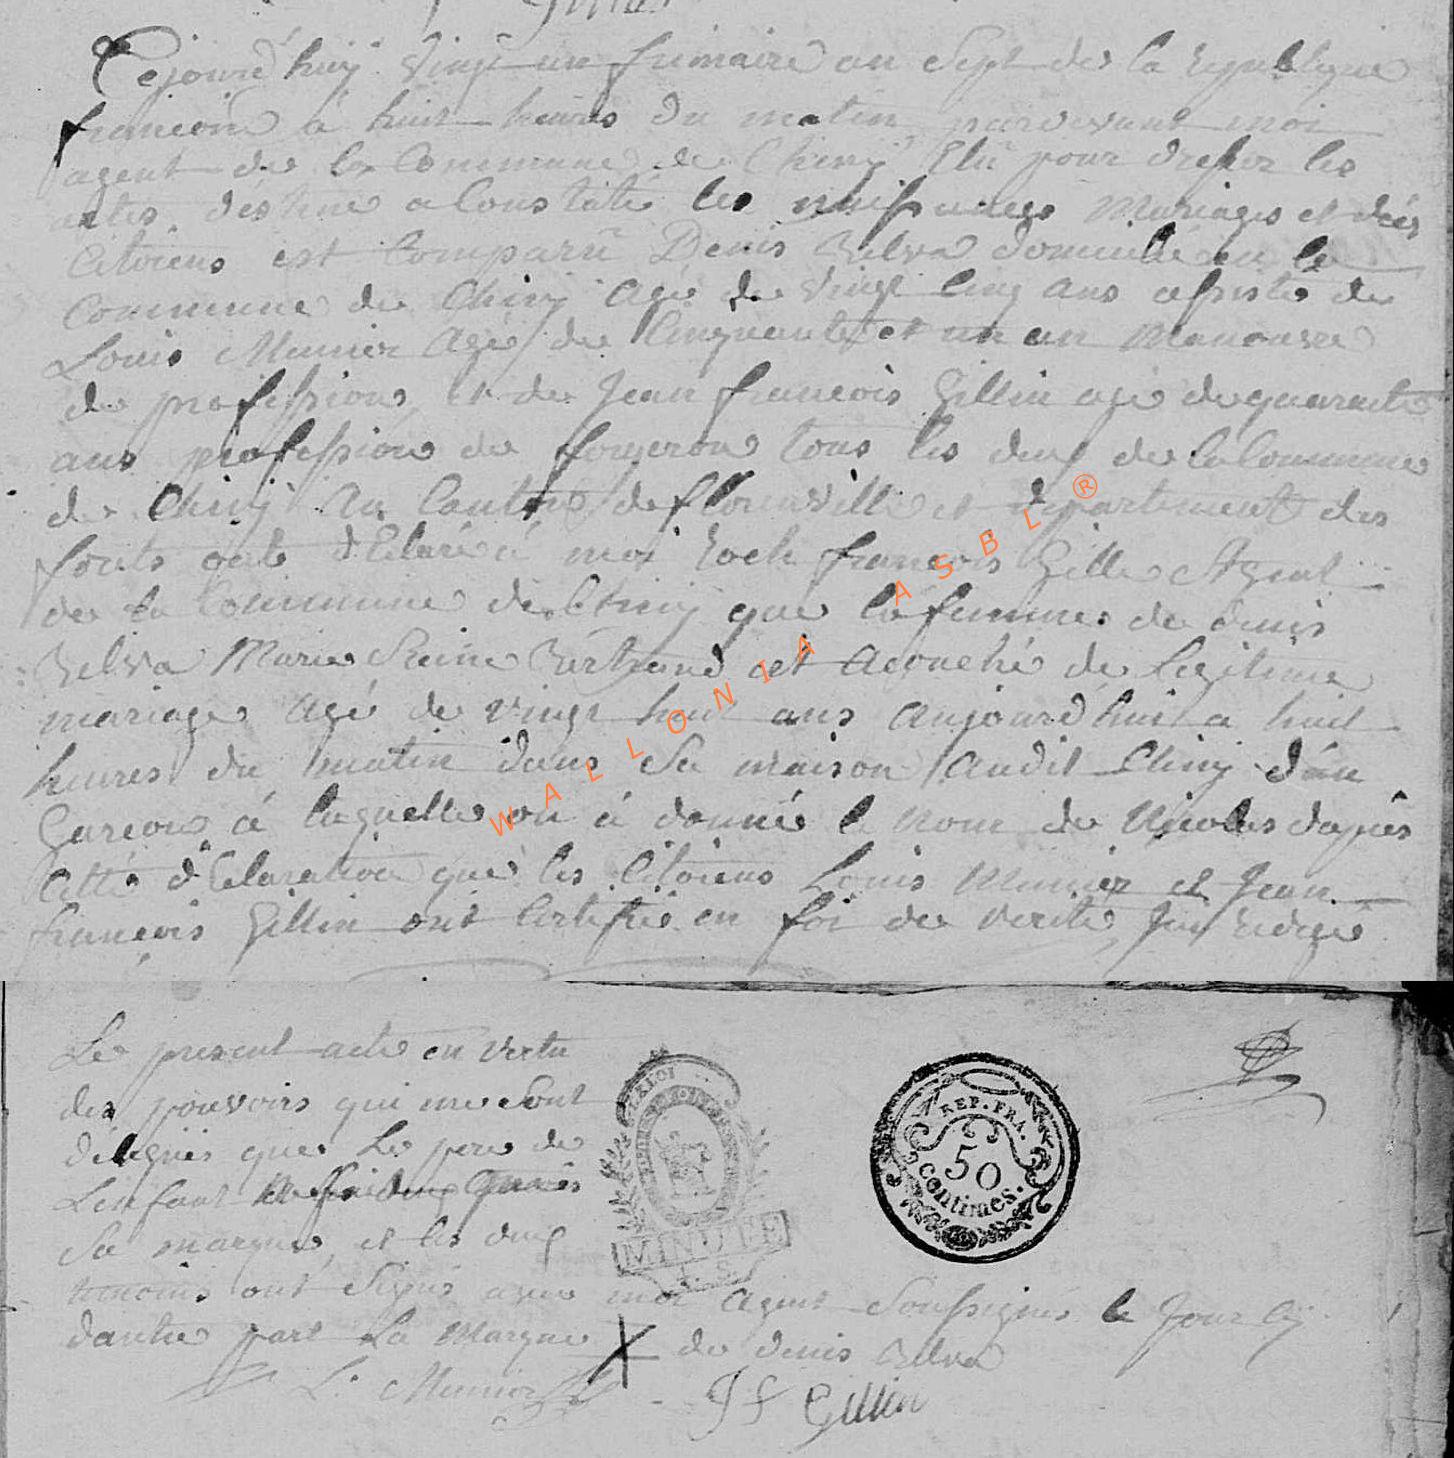 Cejourd'huy vingt un frimaire an Sept de la Republique
francoise à huit heures du matin pardevant moi
agent de la Commune de Chiny Elû pour dresser les
actes destiné a Constaté les naissances Mariages et décès
Citoiens est Comparû Denis Belva domicilié en la
Commune de Chiny Agé de vingt Cinq ans assisté de
Louis Munier Agé de Cinquante et un an Manouvre
de profession et de Jean françois Gillin agé de quarante
ans profession de forgeron tous les deux de la Commune
de Chiny Au Canton de florenville et département des
forêts ont déClaré à moi Roch françois Gille Agent
de la Commune de Chiny que la femme de denis
Belva Marie Reine Bertrand est Acouché de Legitime
mariage Agé de vingt huit ans Aujourd'hui a huit
heures du matin dans Sa maison Audit Chiny d'un
Garcon á laquelle on á donné le Nom de Nicolas dapres
Cette déClaration que les Citoiens Louis Munier et Jean
françois Gillin ont Certifié en foi de verité, J'ai Redigé
Le present acte en vertu
des pouvoirs qui me Sont
délégués que Le pere de
L'enfant
Sa marque et les deux
temoins ont Signé avec moi Agent Soussigné le Jour
dautre part La Marque X de denis Belva
L. Munier J f Gillin
REP. FRA.
50
centimes.
MINUTE
WALLONIA ASBL ®